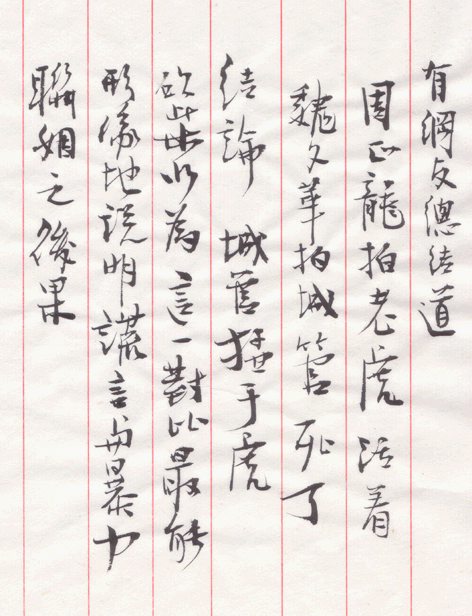 有網友總結道
周正龍拍老虎 活着
魏文華拍城管 死了
結論 城管猛于虎
砍柴以為這一對比最能
形像地説明謊言與暴力
聯姻之後果